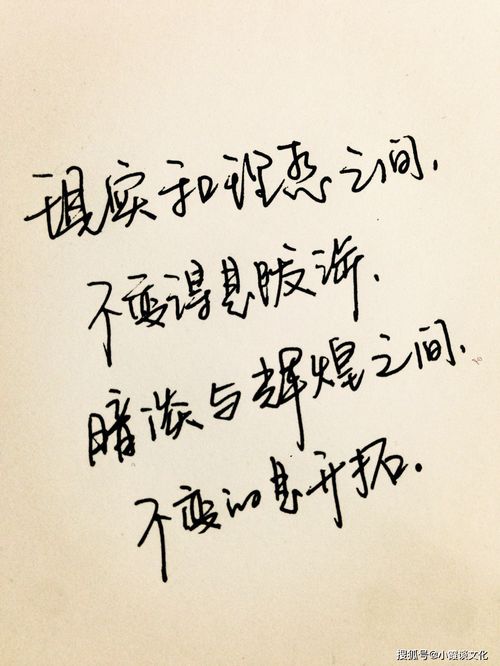 现实和理想之间,
不变得是跋涉.
暗淡与辉煌之间.
不变的是开拓.
搜狐号@小霞谈文化